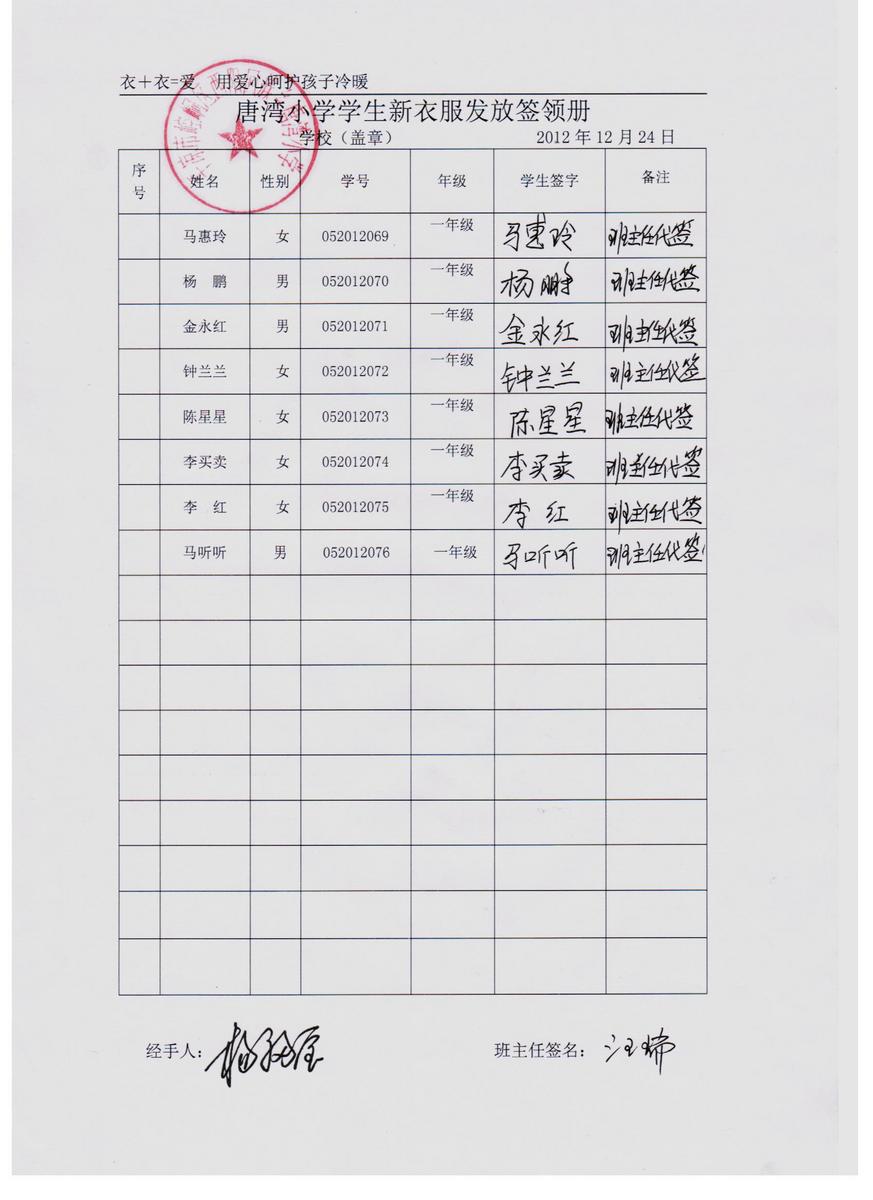 衣+衣=爱 用爱心呵护孩子冷暖
唐湾小学学生新衣服发放签领册
学校（盖章） 2012年12月24日
序号 姓名 性别 学号 年级 学生签字 备注
马惠玲 女 052012069 一年级 马惠玲 班主任代签
杨 鹏 男 052012070 一年级 杨鹏 班主任代签
金永红 男 052012071 一年级 金永红 班主任代签
钟兰兰 女 052012072 一年级 钟兰兰 班主任代签
陈星星 女 052012073 一年级 陈星星 班主任代签
李买卖 女 052012074 一年级 李买卖 班主任代签
李 红 女 052012075 一年级 李 红 班主任代签
马听听 男 052012076 一年级 马听听 班主任代签
经手人： 班主任签名：汪瑞